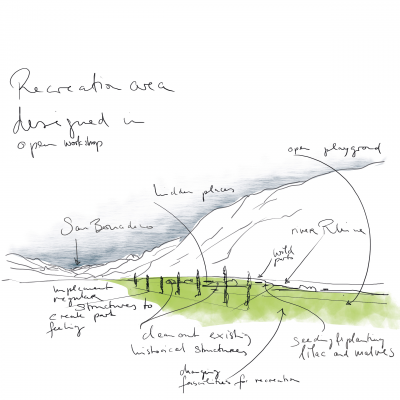 Recreation area
designed in
open workshop
open playground
hidden places
San Bernadino
river Rhine
wild
parts
implement
regular
structures to
create park
feeling
clean out existing
historical structures
seeding & planting
lilac and malves
changing
for recreation